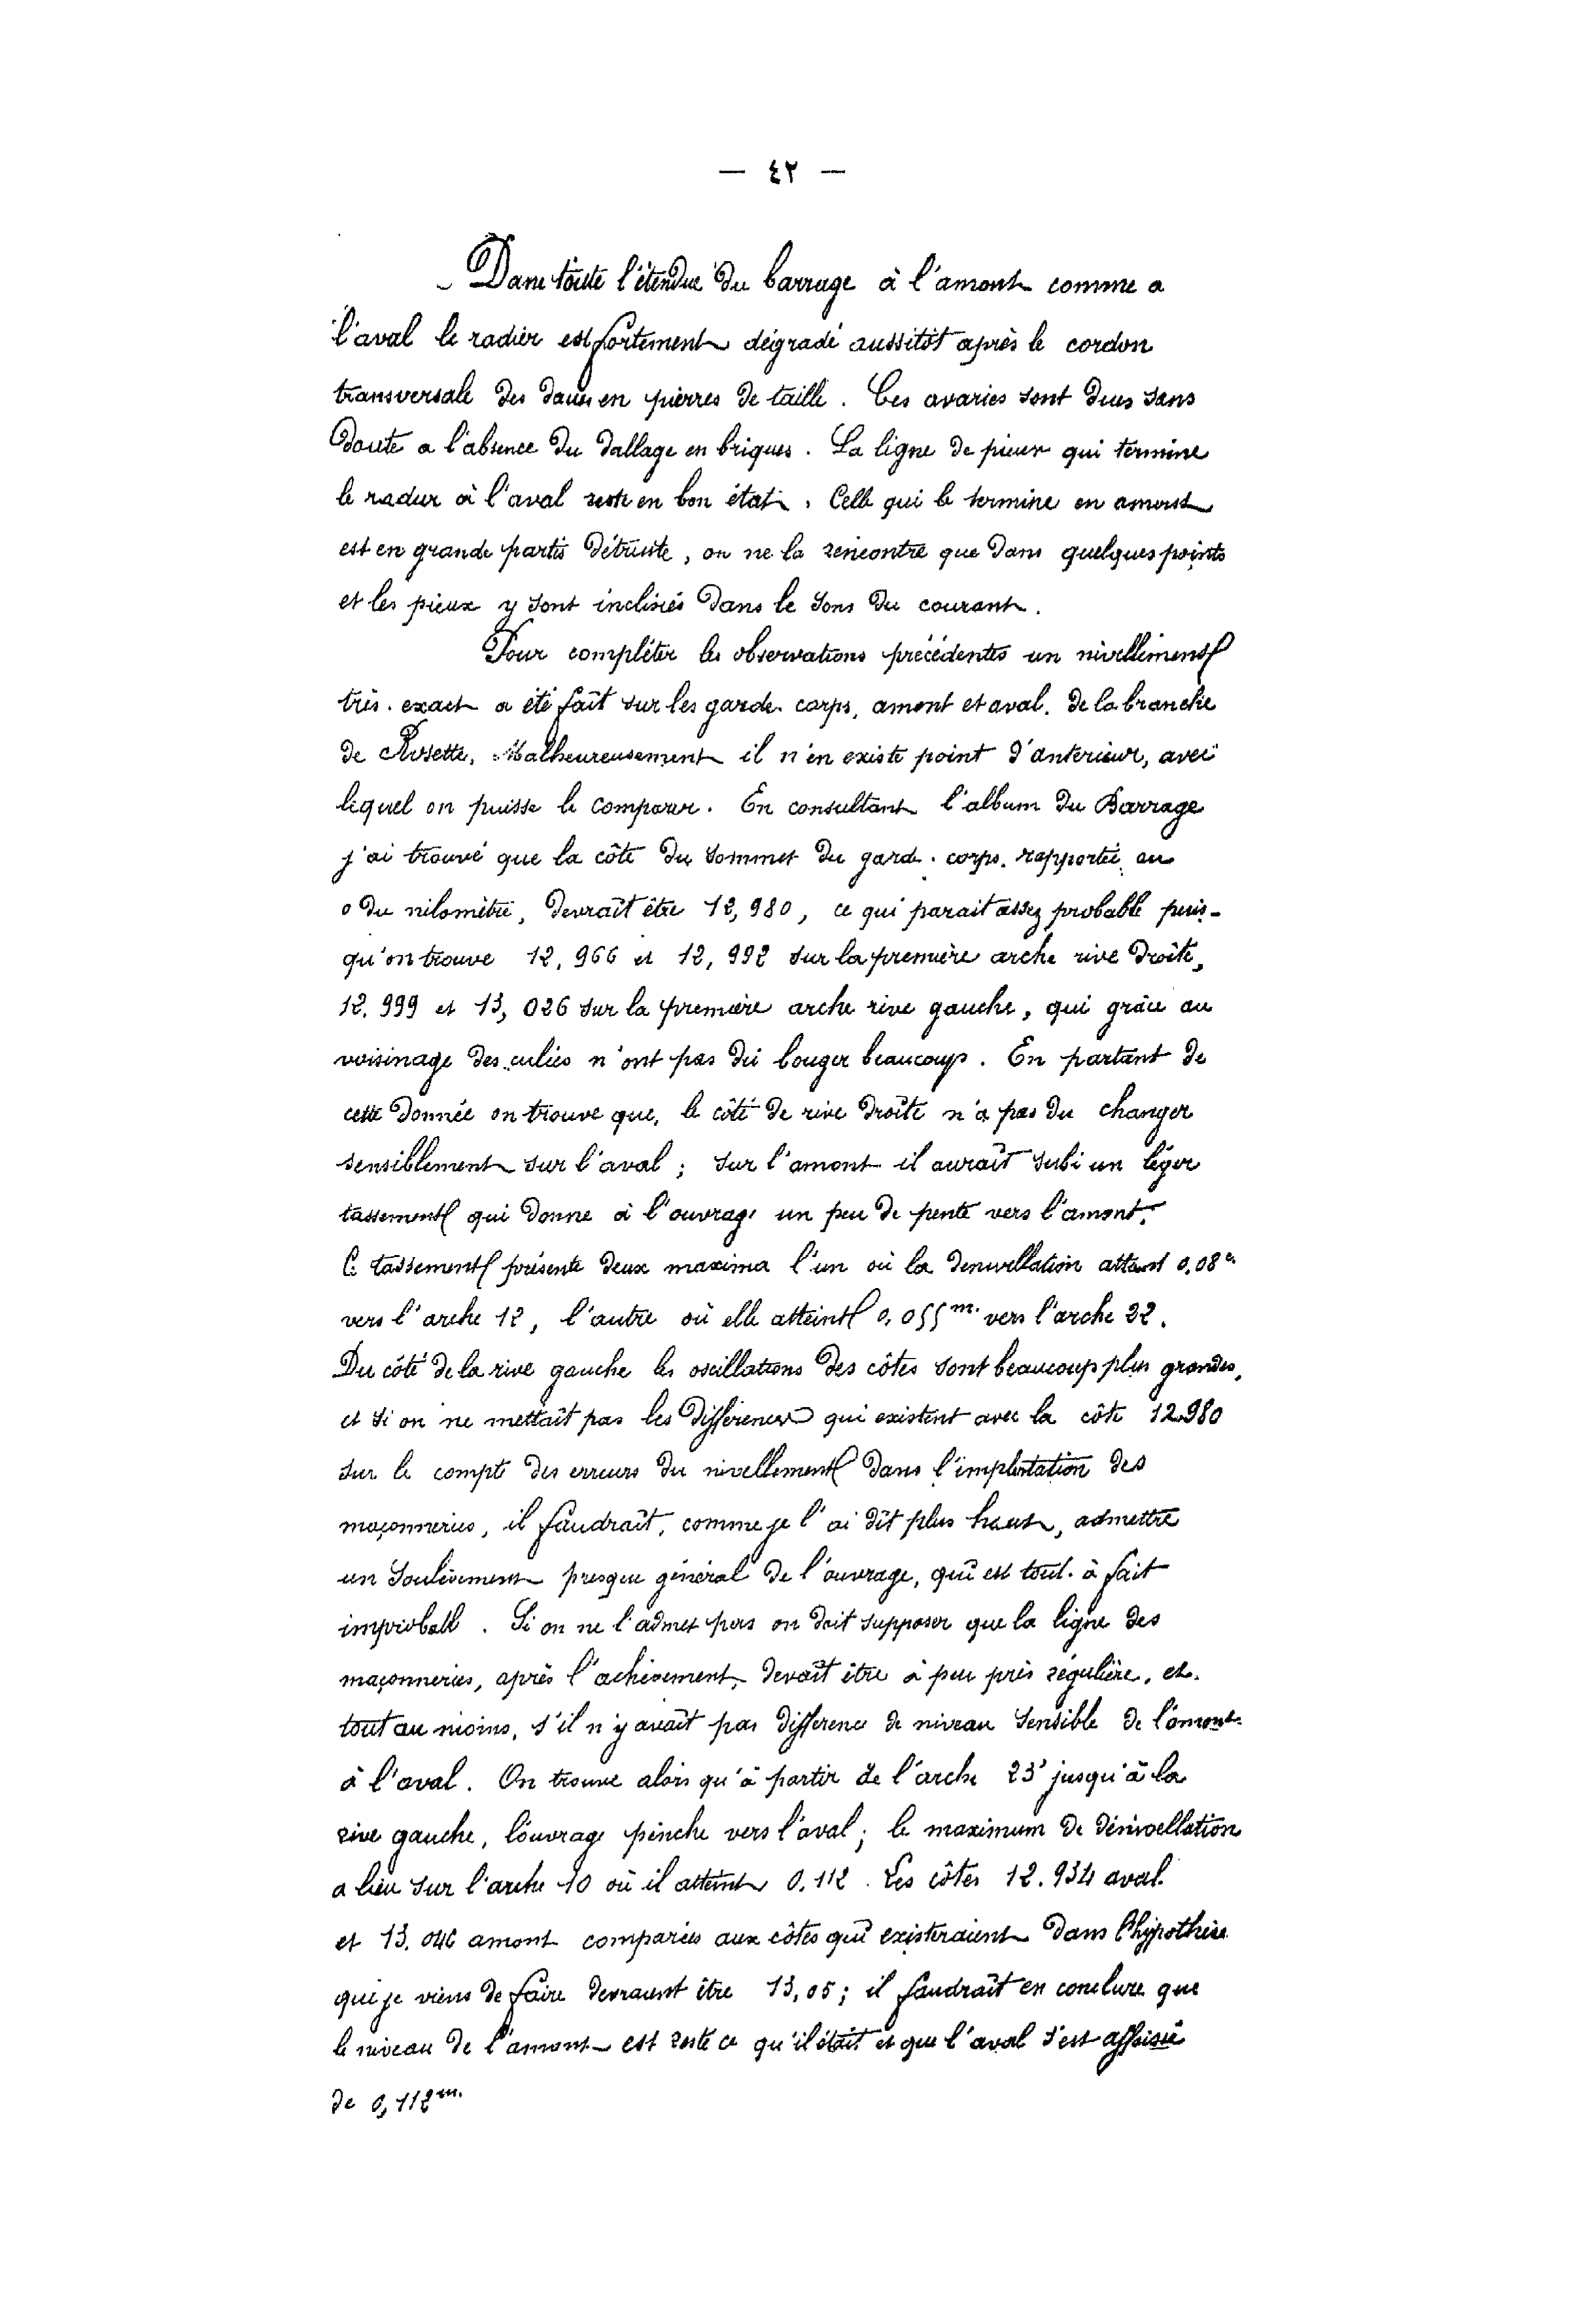 — ٤٢ —
Dans toute l'étendue du barrage à l'amont comme a
l'aval le radier est fortement dégradé aussitôt après le cordon
transversale des daues en pierres de taille. Ces avaries sont dues sans
doute a l'absence du dallage en briques. La ligne de pieux qui termine
le radier à l'aval reste en bon état. Celle qui le termine en amont
est en grande partie détruite, on ne la rencontre que dans quelques points
et les pieux y sont inclinés dans le sens du courant.
Pour compléter les observations précédentes un nivellement
très. exact a été fait sur les garde. corps, amont et aval. de la branche
de Rosette. Malheureusement il n'en existe point d'anterieur, avec
lequel on puisse le comparer. En consultant l'album du Barrage
j'ai trouvé que la côte du sommet du garde. corps. rapportée au
0 du nilomètre, devrait être 12,980, ce qui parait assez probable puis-
qu'on trouve 12,966 et 12,992 sur la première arche rive droite,
12.999 et 13,026 sur la première arche rive gauche, qui grâce au
voisinage des culées n'ont pas dû bouger beaucoup. En partant de
cette donnée on trouve que, le côté de rive droite n'a pas du changer
sensiblement sur l'aval; sur l'amont il aurait subi un léger
tassement qui donne à l'ouvrage un peu de pente vers l'amont.
Ce tassement présente deux maxima l'un où la denivellation atteint 0,08 c.
vers l'arche 12, l'autre où elle atteint 0,055 m. vers l'arche 22.
Du côté de la rive gauche les oscillations des côtes sont beaucoup plus grandes,
et si on ne mettait pas les différences qui existent avec la côte 12.980
sur le compte des erreurs du nivellement dans l'implantation des
maçonneries, il faudrait, comme je l'ai dit plus haut, admettre
un soulèvement presque général de l'ouvrage, qui est tout. à fait
improbable. Si on ne l'admet pas on doit supposer que la ligne des
maçonneries, après l'achèvement, devait être à peu près régulière, et.
tout au moins, s'il n'y avait pas différence de niveau sensible de l'amont
à l'aval. On trouve alors qu'à partir de l'arche 23 jusqu'à la
rive gauche, l'ouvrage penche vers l'aval; le maximum de dénivellation
a lieu sur l'arche 10 où il atteint 0.112. Les côtes 12.934 aval
et 13.046 amont comparées aux côtes qui existeraient dans l'hypothèse
que je viens de faire devraient être 13,05; il faudrait en conclure que
le niveau de l'amont est resté ce qu'il était et que l'aval s'est affaissé
de 0,112 m.